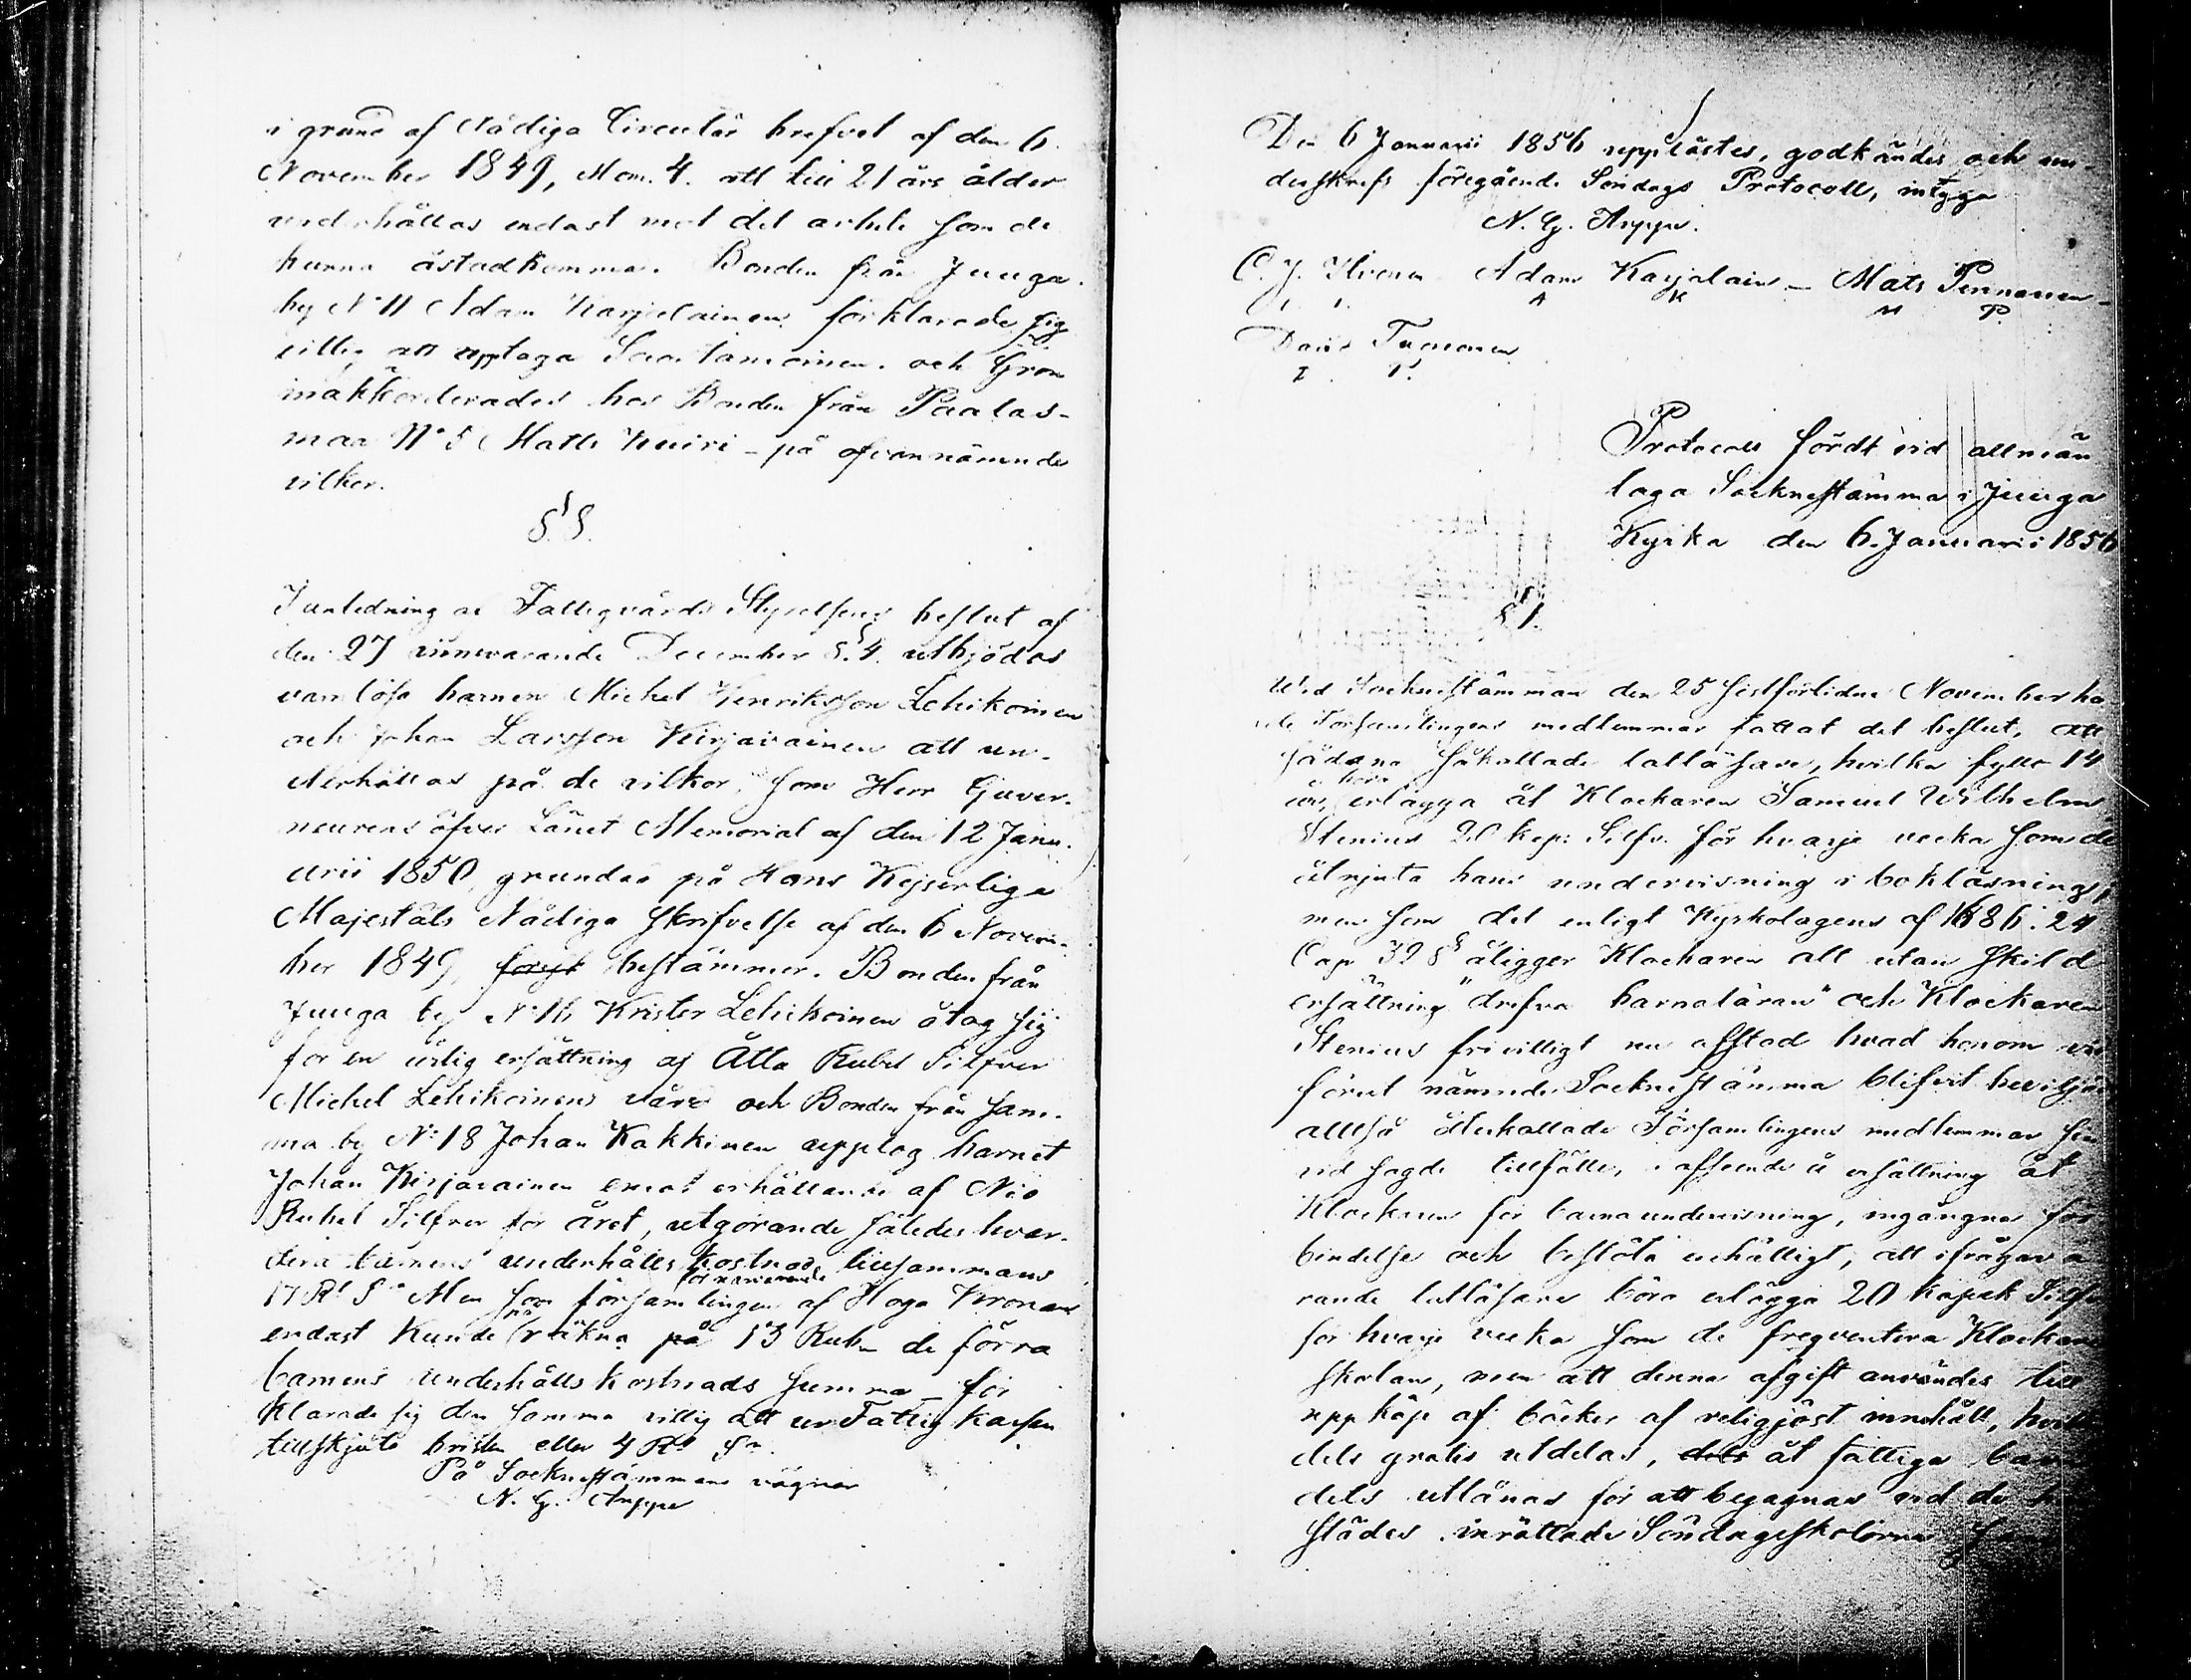 i grund af Nådiga Circulär brefvet af den 6.
November 1849, Mom. 4. att till 21 års ålder
underhållas endast mot det arbete som de
kunna åstadkomma. Bonden från Juuga
by N:o 11 Adam Karjalainen förklarade sig
villig att upptaga och Gron
inakkorderades hos Bonden från Paalas-
maa N:o 5 Matts Kuiri - på ofvannämnde
vilkor.
§ 8.
I anledning af Fattigvårds Styrelsens beslut af
den 27 innevarande December § 4. utbjödos
vanlösa barnen Michel Henriksson Lehikoinen
och Johan Larsson Kirjavainen att un-
derhållas på de vilkor, som Herr Guver-
neurens öfver Länet Memorial af den 12 Janu-
arii 1850, grundad på Hans Kejserliga
Majestäts Nådiga Skrifvelse af den 6 Novem-
ber 1849, bestämmer. Bonden från
Juuga by N:o 16 Krister Lehikoinen åtog sig
för en årlig ersättning af Åtta Rubel Silfver
Michel Lehikoinens vård och Bonden från sam-
ma by N:o 18 Johan Kakkinen upptog barnet
Johan Kirjavainen emot erhållande af Nio
Rubel Silfver för året, utgörande således hvar-
dera barnens underhålls kostnad tillsammans
17 R:l S:r Men som församlingen för närvarande af Höga Kronan
endast kunde räkna på 13 Rub: de förra
barnens underhålls kostnads summa - för
klarade sig den samma villig att ur Fattig kassan
tillskjuta bristen eller 4 R:l S:r.
På Sockneståmmans vägnar
N. G. Arppe
Den 6 Januarii 1856 upplästes, godkändes och un-
derskrefs föregående Söndags Protocoll, intyga
N. G. Arppe.
C. J. Ilvonen Adam Karjalain - Mats Pennanen -
A K M P.
David Tuononen
T.
Protocoll fördt vid allmän
laga Sockneståmma i Juuga
Kyrka den 6. Januarii 1856
§ 1.
Wid Sockneståmman den 25 sistförlidne November ha
de Församlingens medlemmar fattat det beslut, att
sådana såkallade lalläsare, hvilka fyllt 14
år, böra erlägga åt Klockaren Samuel Wilhelm
Stenius 20 kop: Silfv. för hvarje vecka som de
åtnjuta hans undervisning i bokläsning;
men som det enligt Kyrkolagens af 1686. 24
Cap 32 § åligger Klockaren att utan skild
ersättning "drifva barnaläran" och Klockaren
Stenius frivilligt nu afstod hvad honom vid
förut nämnde Sockneståmma blifvit beviljad
alltså återkallade Församlingens medlemmar sin
vid sagde tillfälle, i afseende å ersättning åt
Klockaren för barnaundervisning, ingångna för
bindelse och beslöto enhälligt, att ifrågava
rande lalläsare böra erlägga 20 kopek Silfv
för hvarje vecka som de freqventera Klockare
skolan, men att denna afgift användes till
uppköp af böcker af religjöst innehåll, hvilka
dels gratis utdelas, åt fattiga barn
dels utlånas för att begagnas vid de
städes inrättade Söndagsskolorna